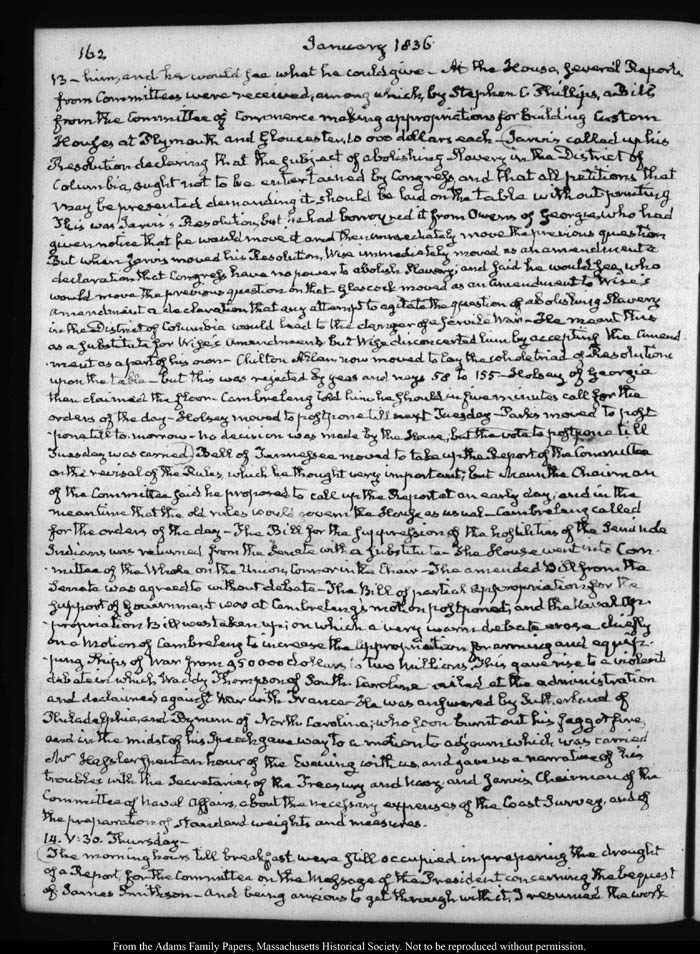 162
January 1836
13 – him, and he would see what he could give – At the House, several Reports
from Committees were received, among which, by Stephen C. Phillips, a Bill
from the Committee of Commerce making appropriations for building Custom
Houses at Plymouth and Gloucester, 10 000 dollars each – Jarvis called up his
Resolution declaring that the subject of abolishing Slavery in the District of
Columbia, ought not to be entertained by Congress, and that all petitions that
may be presented demanding it should be laid on the table without printing
This was Jarvis's Resolution, but he had borrowed it from Owens of Georgia, who had
given notice that he would move it and then immediately move the previous question
But when Jarvis moved his Resolution, Wise immediately moved as an amendment a
declaration that Congress have no power to abolish Slavery; and said he would see who
would move the previous question on that – Glascock moved as an amendment to Wise's
amendment a declaration that any attempt to agitate the question of abolishing Slavery
in the District of Columbia would lead to the danger of a servile War – He meant this
as a substitute for Wise's amendment but Wise disconcerted him by accepting the amend-
-ment as a part of his own – Chilton Allan now moved to lay the whole triad of Resolutions
upon the table – but this was rejected by yeas and nays 58 to 155 – Holsey of Georgia
then claimed the floor – Cambreleng told him he should in five minutes call for the
orders of the day – Holsey moved to postpone till next Tuesday – Parks moved to post-
-pone till to-morrow – no decision was made by the House, but the vote to postpone till
Tuesday was carried) Bell of Tennessee moved to take up the Report of the Committee
on the revisal of the Rules, which he thought very important; but Mann the Chairman
of the Committee said he proposed to call up the Report at an early day; and in the
meantime that the old rules would govern the House as usual – Cambreleng called
for the orders of the day – The Bill for the suppression of the hostilities of the Seminole
Indians was returned from the Senate with a substitute – The House went into Com-
-mittee of the Whole on the Union, Connor in the Chair – The amended Bill from the
Senate was agreed to without debate – The Bill of partial appropriations for the
support of Government was at Cambreleng's motion postponed, and the Naval Ap-
-propriation Bill was taken up; on which a very warm debate arose chiefly
on a motion of Cambreleng to increase the appropriation for arming and equip-
-ping Ships of War from 950 000 dollars, to two millions. This gave rise to a violent
debate in which Waddy Thompson of South Carolina railed at the administration
and declaimed against War with France – He was answered by Sutherland of
Philadelphia, and Bynum of North Carolina; who soon burnt out his faggot fire,
and in the midst of his speech gave way to a motion to adjourn which was carried
Mr Hassler spent an hour of the Evening with us, and gave us a narrative of his
troubles with the Secretaries of the Treasury and Navy, and Jarvis Chairman of the
Committee of Naval Affairs, about the necessary expenses of the Coast Survey, and of
the preparation of standard weights and measures.
14. V:30. Thursday –
(The morning hours till breakfast were still occupied in preparing the draught
of a Report, for the Committee on the Message of the President concerning the bequest
of James Smithson – And being anxious to get through with it, I resumed the work
From the Adams Family Papers, Massachusetts Historical Society. Not to be reproduced without permission.